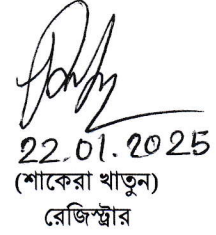 22.01.2025
(শাকেরা খাতুন)
রেজিস্ট্রার